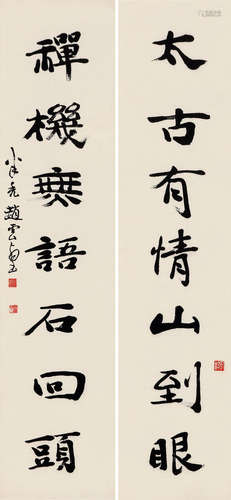 太古有情山到眼
禪機無語石回頭
小米兄 趙雲壑